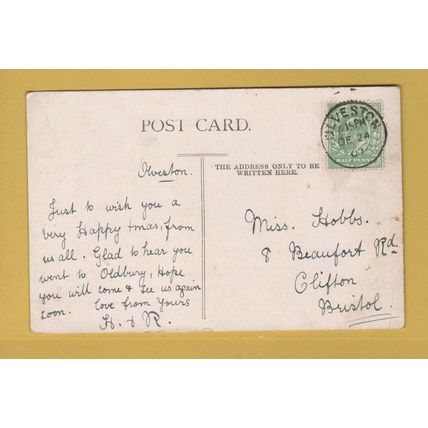 POST CARD.
THE ADDRESS ONLY TO BE
WRITTEN HERE.
Olveston.
Just to wish you a
very Happy Xmas, from
us all. Glad to hear you
went to Oldbury, Hope
you will come & see us again
soon. Love from yours
H. & R.
Miss. Hobbs.
8 Beaufort Rd.
Clifton
Bristol.
OLVESTON
DE 24
07
HALFPENNY